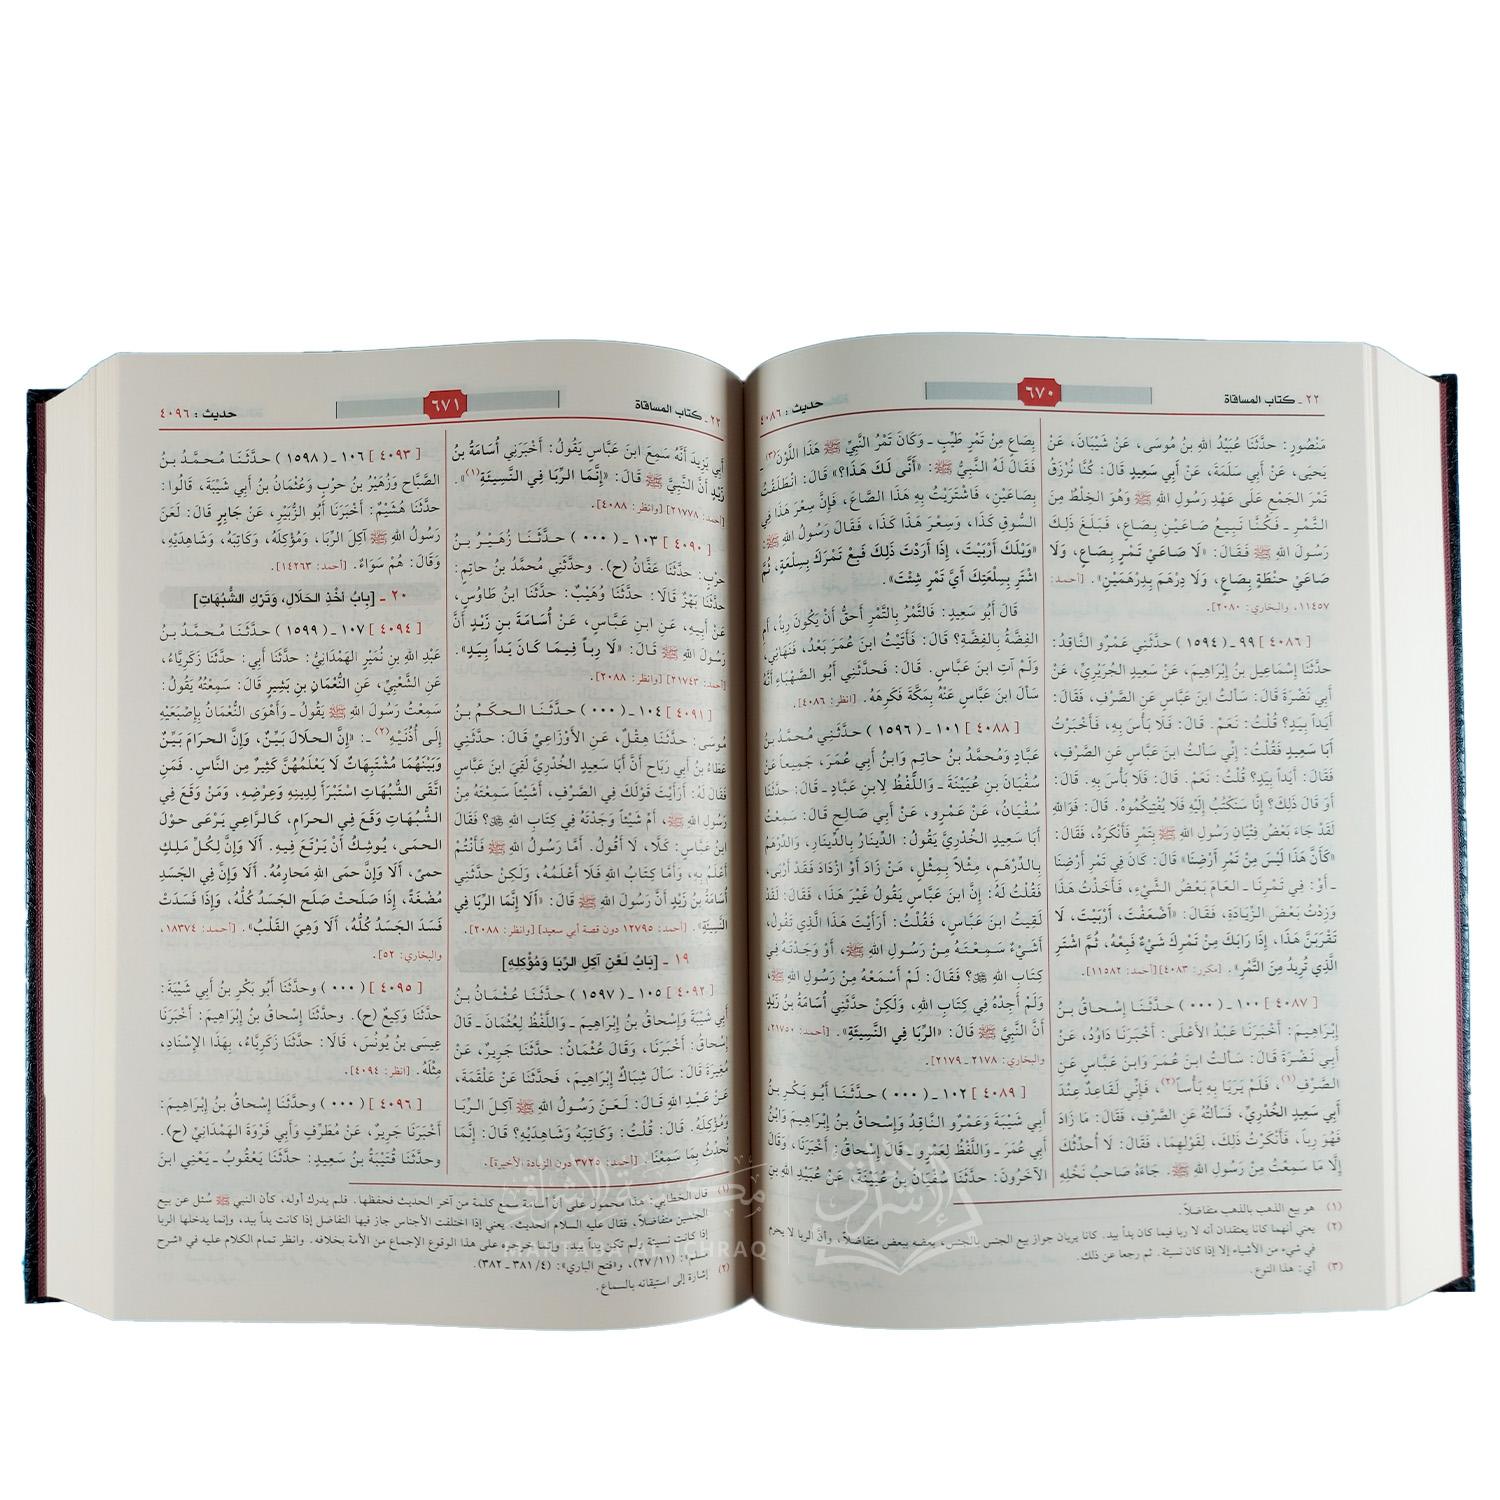 ٢٢ ـ كتاب المساقاة
٦٧٠
حديث : ٤٠٨٦
مَنْصُورٍ: حَدَّثَنَا عُبَيْدُ اللهِ بنُ مُوسَى، عَنْ شَيْبَانَ، عَنْ
يَحيَى، عَنْ أَبِي سَلَمَةَ، عَنْ أَبِي سَعِيدٍ قَالَ: كُنَّا نُرْزَقُ
تَمْرَ الجَمْعِ عَلَى عَهْدِ رَسُولِ اللهِ ﷺ وَهُوَ الخِلْطُ مِنَ
التَّمْرِ ـ فَكُنَّا نَبِيعُ صَاعَيْنِ بِصَاعٍ، فَبَلَغَ ذَلِكَ
رَسُولَ اللهِ ﷺ فَقَالَ: «لَا صَاعَيْ تَمْرٍ بِصَاعٍ، وَلَا
صَاعَيْ حِنْطَةٍ بِصَاعٍ، وَلَا دِرْهَمَ بِدِرْهَمَيْنِ». [أحمد:
١١٤٥٧، والبخاري: ٢٠٨٠].
[ ٤٠٨٦ ] ٩٩ ـ ( ١٥٩٤ ) حَدَّثَنِي عَمْرٌو النَّاقِدُ:
حَدَّثَنَا إِسْمَاعِيلُ بنُ إِبْرَاهِيمَ، عَنْ سَعِيدٍ الجُرَيْرِيِّ، عَنْ
أَبِي نَضْرَةَ قَالَ: سَأَلْتُ ابنَ عَبَّاسٍ عَنِ الصَّرْفِ، فَقَالَ:
أَيَداً بِيَدٍ؟ قُلْتُ: نَعَمْ. قَالَ: فَلَا بَأْسَ بِهِ، فَأَخْبَرْتُ
أَبَا سَعِيدٍ فَقُلْتُ: إِنِّي سَأَلْتُ ابنَ عَبَّاسٍ عَنِ الصَّرْفِ،
فَقَالَ: أَيَداً بِيَدٍ؟ قُلْتُ: نَعَمْ. قَالَ: فَلَا بَأْسَ بِهِ. قَالَ:
أَوَ قَالَ ذَلِكَ؟ إِنَّا سَنَكْتُبُ إِلَيْهِ فَلَا يُفْتِيكُمُوهُ. قَالَ: فَوَاللهِ
لَقَدْ جَاءَ بَعْضُ فِتْيَانِ رَسُولِ اللهِ ﷺ بِتَمْرٍ فَأَنْكَرَهُ، فَقَالَ:
«كَأَنَّ هَذَا لَيْسَ مِنْ تَمْرِ أَرْضِنَا» قَالَ: كَانَ فِي تَمْرِ أَرْضِنَا
ـ أَوْ: فِي تَمْرِنَا ـ العَامَ بَعْضُ الشَّيْءِ، فَأَخَذْتُ هَذَا
وَزِدْتُ بَعْضَ الزِّيَادَةِ، فَقَالَ: «أَضْعَفْتَ، أَرْبَيْتَ، لَا
تَقْرَبَنَّ هَذَا، إِذَا رَابَكَ مِنْ تَمْرِكَ شَيْءٌ فَبِعْهُ، ثُمَّ اشْتَرِ
الَّذِي تُرِيدُ مِنَ التَّمْرِ». [مكرر: ٤٠٨٣] [أحمد: ١١٥٨٢].
[ ٤٠٨٧ ] ١٠٠ ـ ( ٠٠٠ ) حَدَّثَنَا إِسْحَاقُ بنُ
إِبْرَاهِيمَ: أَخْبَرَنَا عَبْدُ الأَعْلَى: أَخْبَرَنَا دَاوُدُ، عَنْ
أَبِي نَضْرَةَ قَالَ: سَأَلْتُ ابنَ عُمَرَ وَابنَ عَبَّاسٍ عَنِ
الصَّرْفِ(١)، فَلَمْ يَرَيَا بِهِ بَأْساً(٢)، فَإِنِّي لَقَاعِدٌ عِنْدَ
أَبِي سَعِيدٍ الخُدْرِيِّ، فَسَأَلْتُهُ عَنِ الصَّرْفِ، فَقَالَ: مَا زَادَ
فَهُوَ رِباً، فَأَنْكَرْتُ ذَلِكَ، لِقَوْلِهِمَا، فَقَالَ: لَا أُحَدِّثُكَ
إِلَّا مَا سَمِعْتُ مِنْ رَسُولِ اللهِ ﷺ. جَاءَهُ صَاحِبُ نَخْلِهِ
بِصَاعٍ مِنْ تَمْرٍ طَيِّبٍ ـ وَكَانَ تَمْرُ النَّبِيِّ ﷺ هَذَا اللَّوْنَ(٣) ـ
فَقَالَ لَهُ النَّبِيُّ ﷺ: «أَنَّى لَكَ هَذَا؟» قَالَ: انْطَلَقْتُ
بِصَاعَيْنِ، فَاشْتَرَيْتُ بِهِ هَذَا الصَّاعَ، فَإِنَّ سِعْرَ هَذَا فِي
السُّوقِ كَذَا، وَسِعْرَ هَذَا كَذَا، فَقَالَ رَسُولُ اللهِ ﷺ:
«وَيْلَكَ أَرْبَيْتَ، إِذَا أَرَدْتَ ذَلِكَ فَبِعْ تَمْرَكَ بِسِلْعَةٍ، ثُمَّ
اشْتَرِ بِسِلْعَتِكَ أَيَّ تَمْرٍ شِئْتَ».
قَالَ أَبُو سَعِيدٍ: فَالتَّمْرُ بِالتَّمْرِ أَحَقُّ أَنْ يَكُونَ رِباً، أَمِ
الفِضَّةُ بِالفِضَّةِ؟ قَالَ: فَأَتَيْتُ ابنَ عُمَرَ بَعْدُ، فَنَهَانِي،
وَلَمْ آتِ ابنَ عَبَّاسٍ. قَالَ: فَحَدَّثَنِي أَبُو الصَّهْبَاءِ أَنَّهُ
سَأَلَ ابنَ عَبَّاسٍ عَنْهُ بِمَكَّةَ فَكَرِهَهُ. [انظر: ٤٠٨٦].
[ ٤٠٨٨ ] ١٠١ ـ ( ١٥٩٦ ) حَدَّثَنِي مُحَمَّدُ بنُ
عَبَّادٍ وَمُحَمَّدُ بنُ حَاتِمٍ وَابنُ أَبِي عُمَرَ، جَمِيعاً عَنْ
سُفْيَانَ بنِ عُيَيْنَةَ ـ وَاللَّفْظُ لِابنِ عَبَّادٍ ـ قَالَ: حَدَّثَنَا
سُفْيَانُ، عَنْ عَمْرٍو، عَنْ أَبِي صَالِحٍ قَالَ: سَمِعْتُ
أَبَا سَعِيدٍ الخُدْرِيَّ يَقُولُ: الدِّينَارُ بِالدِّينَارِ، وَالدِّرْهَمُ
بِالدِّرْهَمِ، مِثْلاً بِمِثْلٍ، مَنْ زَادَ أَوْ ازْدَادَ فَقَدْ أَرْبَى،
فَقُلْتُ لَهُ: إِنَّ ابنَ عَبَّاسٍ يَقُولُ غَيْرَ هَذَا، فَقَالَ: لَقَدْ
لَقِيتُ ابنَ عَبَّاسٍ، فَقُلْتُ: أَرَأَيْتَ هَذَا الَّذِي تَقُولُ،
أَشَيْءٌ سَمِعْتَهُ مِنْ رَسُولِ اللهِ ﷺ، أَوْ وَجَدْتَهُ فِي
كِتَابِ اللهِ ﷻ؟ فَقَالَ: لَمْ أَسْمَعْهُ مِنْ رَسُولِ اللهِ ﷺ،
وَلَمْ أَجِدْهُ فِي كِتَابِ اللهِ، وَلَكِنْ حَدَّثَنِي أُسَامَةُ بنُ زَيْدٍ
أَنَّ النَّبِيَّ ﷺ قَالَ: «الرِّبَا فِي النَّسِيئَةِ». [أحمد: ٢١٧٥٠،
والبخاري: ٢١٧٨ ـ ٢١٧٩].
[ ٤٠٨٩ ] ١٠٢ ـ ( ٠٠٠ ) حَدَّثَنَا أَبُو بَكْرِ بنُ
أَبِي شَيْبَةَ وَعَمْرٌو النَّاقِدُ وَإِسْحَاقُ بنُ إِبْرَاهِيمَ وَابْنُ
أَبِي عُمَرَ ـ وَاللَّفْظُ لِعَمْرٍو ـ قَالَ إِسْحَاقُ: أَخْبَرَنَا، وَقَالَ
الآخَرُونَ: حَدَّثَنَا سُفْيَانُ بنُ عُيَيْنَةَ، عَنْ عُبَيْدِ اللهِ بنِ
(١) هو بيع الذهب بالذهب متفاضلاً.
(٢) يعني أنهما كانا يعتقدان أنه لا ربا فيما كان يداً بيد. كانا يريان جواز بيع الجنس بالجنس، بعضه ببعض متفاضلاً، وأنَّ الربا لا يحرم
في شيء من الأشياء إلا إذا كان نسيئة. ثم رجعا عن ذلك.
(٣) أي: هذا النوع.
٢٢ ـ كتاب المساقاة
٦٧١
حديث : ٤٠٩٦
أَبِي يَزِيدَ أَنَّهُ سَمِعَ ابنَ عَبَّاسٍ يَقُولُ: أَخْبَرَنِي أُسَامَةُ بنُ
زَيْدٍ أَنَّ النَّبِيَّ ﷺ قَالَ: «إِنَّمَا الرِّبَا فِي النَّسِيئَةِ(١)».
[أحمد: ٢١٧٧٨] [وانظر: ٤٠٨٨].
[ ٤٠٩٠ ] ١٠٣ ـ ( ٠٠٠ ) حَدَّثَنَا زُهَيْرُ بنُ
حَرْبٍ: حَدَّثَنَا عَفَّانُ (ح). وحَدَّثَنِي مُحَمَّدُ بنُ حَاتِمٍ:
حَدَّثَنَا بَهْزٌ قَالَا: حَدَّثَنَا وُهَيْبٌ: حَدَّثَنَا ابنُ طَاوُسٍ،
عَنْ أَبِيهِ، عَنِ ابنِ عَبَّاسٍ، عَنْ أُسَامَةَ بنِ زَيْدٍ أَنَّ
رَسُولَ اللهِ ﷺ قَالَ: «لَا رِباً فِيمَا كَانَ يَداً بِيَدٍ».
[أحمد: ٢١٧٤٣] [وانظر: ٢٠٨٨].
[ ٤٠٩١ ] ١٠٤ ـ ( ٠٠٠ ) حَدَّثَنَا الحَكَمُ بنُ
مُوسَى: حَدَّثَنَا هِقْلٌ، عَنِ الأَوْزَاعِيِّ قَالَ: حَدَّثَنِي
عَطَاءُ بنُ أَبِي رَبَاحٍ أَنَّ أَبَا سَعِيدٍ الخُدْرِيَّ لَقِيَ ابنَ عَبَّاسٍ
فَقَالَ لَهُ: أَرَأَيْتَ قَوْلَكَ فِي الصَّرْفِ، أَشَيْئاً سَمِعْتَهُ مِنْ
رَسُولِ اللهِ ﷺ، أَمْ شَيْئاً وَجَدْتَهُ فِي كِتَابِ اللهِ ﷻ؟ فَقَالَ
ابنُ عَبَّاسٍ: كَلَّا، لَا أَقُولُ. أَمَّا رَسُولُ اللهِ ﷺ فَأَنْتُمْ
أَعْلَمُ بِهِ، وَأَمَّا كِتَابُ اللهِ فَلَا أَعْلَمُهُ، وَلَكِنْ حَدَّثَنِي
أُسَامَةُ بنُ زَيْدٍ أَنَّ رَسُولَ اللهِ ﷺ قَالَ: «أَلَا إِنَّمَا الرِّبَا فِي
النَّسِيئَةِ». [أحمد: ١٢٧٩٥ دون قصة أبي سعيد] [وانظر: ٢٠٨٨].
١٩ ـ [بَابُ لَعْنِ آكِلِ الرِّبَا وَمُؤْكِلِهِ]
[ ٤٠٩٢ ] ١٠٥ ـ ( ١٥٩٧ ) حَدَّثَنَا عُثْمَانُ بنُ
أَبِي شَيْبَةَ وَإِسْحَاقُ بنُ إِبْرَاهِيمَ ـ وَاللَّفْظُ لِعُثْمَانَ ـ قَالَ
إِسْحَاقُ: أَخْبَرَنَا، وَقَالَ عُثْمَانُ: حَدَّثَنَا جَرِيرٌ، عَنْ
مُغِيرَةَ قَالَ: سَأَلَ شِبَاكٌ إِبْرَاهِيمَ، فَحَدَّثَنَا عَنْ عَلْقَمَةَ،
عَنْ عَبْدِ اللهِ قَالَ: لَعَنَ رَسُولُ اللهِ ﷺ آكِلَ الرِّبَا
وَمُؤْكِلَهُ. قَالَ: قُلْتُ: وَكَاتِبَهُ وَشَاهِدَيْهِ؟ قَالَ: إِنَّمَا
نُحَدِّثُ بِمَا سَمِعْنَا. [أحمد: ٣٧٢٥ دون الزيادة الأخيرة].
[ ٤٠٩٣ ] ١٠٦ ـ ( ١٥٩٨ ) حَدَّثَنَا مُحَمَّدُ بنُ
الصَّبَّاحِ وَزُهَيْرُ بنُ حَرْبٍ وَعُثْمَانُ بنُ أَبِي شَيْبَةَ، قَالُوا:
حَدَّثَنَا هُشَيْمٌ: أَخْبَرَنَا أَبُو الزُّبَيْرِ، عَنْ جَابِرٍ قَالَ: لَعَنَ
رَسُولُ اللهِ ﷺ آكِلَ الرِّبَا، وَمُؤْكِلَهُ، وَكَاتِبَهُ، وَشَاهِدَيْهِ،
وَقَالَ: هُمْ سَوَاءٌ. [أحمد: ١٤٢٦٣].
٢٠ ـ [بَابُ أَخْذِ الحَلَالِ، وَتَرْكِ الشُّبُهَاتِ]
[ ٤٠٩٤ ] ١٠٧ ـ ( ١٥٩٩ ) حَدَّثَنَا مُحَمَّدُ بنُ
عَبْدِ اللهِ بنِ نُمَيْرٍ الهَمْدَانِيُّ: حَدَّثَنَا أَبِي: حَدَّثَنَا زَكَرِيَّاءُ،
عَنِ الشَّعْبِيِّ، عَنِ النُّعْمَانِ بنِ بَشِيرٍ قَالَ: سَمِعْتُهُ يَقُولُ:
سَمِعْتُ رَسُولَ اللهِ ﷺ يَقُولُ ـ وَأَهْوَى النُّعْمَانُ بِإِصْبَعَيْهِ
إِلَى أُذُنَيْهِ(٢) ـ: «إِنَّ الحَلَالَ بَيِّنٌ، وَإِنَّ الحَرَامَ بَيِّنٌ
وَبَيْنَهُمَا مُشْتَبِهَاتٌ لَا يَعْلَمُهُنَّ كَثِيرٌ مِنَ النَّاسِ. فَمَنِ
اتَّقَى الشُّبُهَاتِ اسْتَبْرَأَ لِدِينِهِ وَعِرْضِهِ، وَمَنْ وَقَعَ فِي
الشُّبُهَاتِ وَقَعَ فِي الحَرَامِ، كَالرَّاعِي يَرْعَى حَوْلَ
الحِمَى، يُوشِكُ أَنْ يَرْتَعَ فِيهِ. أَلَا وَإِنَّ لِكُلِّ مَلِكٍ
حِمىً، أَلَا وَإِنَّ حِمَى اللهِ مَحَارِمُهُ. أَلَا وَإِنَّ فِي الجَسَدِ
مُضْغَةً، إِذَا صَلَحَتْ صَلَحَ الجَسَدُ كُلُّهُ، وَإِذَا فَسَدَتْ
فَسَدَ الجَسَدُ كُلُّهُ، أَلَا وَهِيَ القَلْبُ». [أحمد: ١٨٣٧٤،
والبخاري: ٥٢].
[ ٤٠٩٥ ] ( ٠٠٠ ) وحَدَّثَنَا أَبُو بَكْرِ بنُ أَبِي شَيْبَةَ:
حَدَّثَنَا وَكِيعٌ (ح). وحَدَّثَنَا إِسْحَاقُ بنُ إِبْرَاهِيمَ: أَخْبَرَنَا
عِيسَى بنُ يُونُسَ، قَالَا: حَدَّثَنَا زَكَرِيَّاءُ، بِهَذَا الإِسْنَادِ،
مِثْلَهُ. [انظر: ٤٠٩٤].
[ ٤٠٩٦ ] ( ٠٠٠ ) وحَدَّثَنَا إِسْحَاقُ بنُ إِبْرَاهِيمَ:
أَخْبَرَنَا جَرِيرٌ، عَنْ مُطَرِّفٍ وَأَبِي فَرْوَةَ الهَمْدَانِيِّ (ح).
وحَدَّثَنَا قُتَيْبَةُ بنُ سَعِيدٍ: حَدَّثَنَا يَعْقُوبُ ـ يَعْنِي ابنَ
(١) قال الخطابي: هذا محمول على أنَّ أسامة سمع كلمة من آخر الحديث فحفظها. فلم يدرك أوله، كأن النبي ﷺ سُئل عن بيع
الجنسين متفاضلاً، فقال عليه السلام الحديث. يعني إذا اختلفت الأجناس جاز فيها التفاضل إذا كانت يداً بيد، وإنما يدخلها الربا
إذا كانت نسيئة ولم تكن يداً بيد. وإنما خرجوه على هذا لوقوع الإجماع من الأمة بخلافه. وانظر تمام الكلام عليه في «شرح
مسلم»: (١١/ ٢٧)، و«فتح الباري»: (٤/ ٣٨١ ـ ٣٨٢).
(٢) إشارة إلى استيقانه بالسماع.
مكتبة الإشراق
MAKTABA AL-ICHRAQ
الإشراق